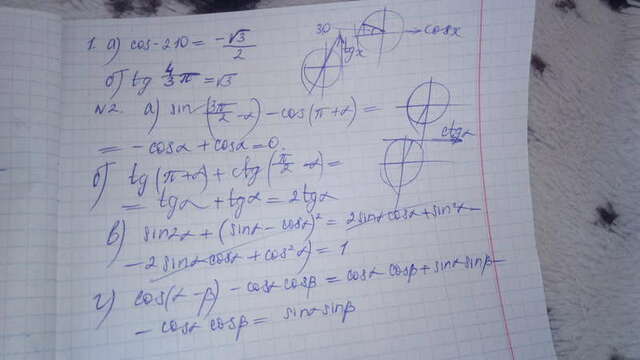 1. а) cos-210 = -√3/2
б) tg 4/3 π = √3
30
tgx
cosx
N2. а) sin(3π/2 - α) - cos(π + α) =
= -cosα + cosα = 0.
ctgα
б) tg(π + α) + ctg(π/2 - α) =
= tgα + tgα = 2tgα
в) sin2α + (sinα - cosα)² = 2sinα cosα + sin²α -
- 2sinα cosα + cos²α) = 1
г) cos(α - β) - cosα cosβ = cosα cosβ + sinα sinβ -
- cosα cosβ = sinα sinβ